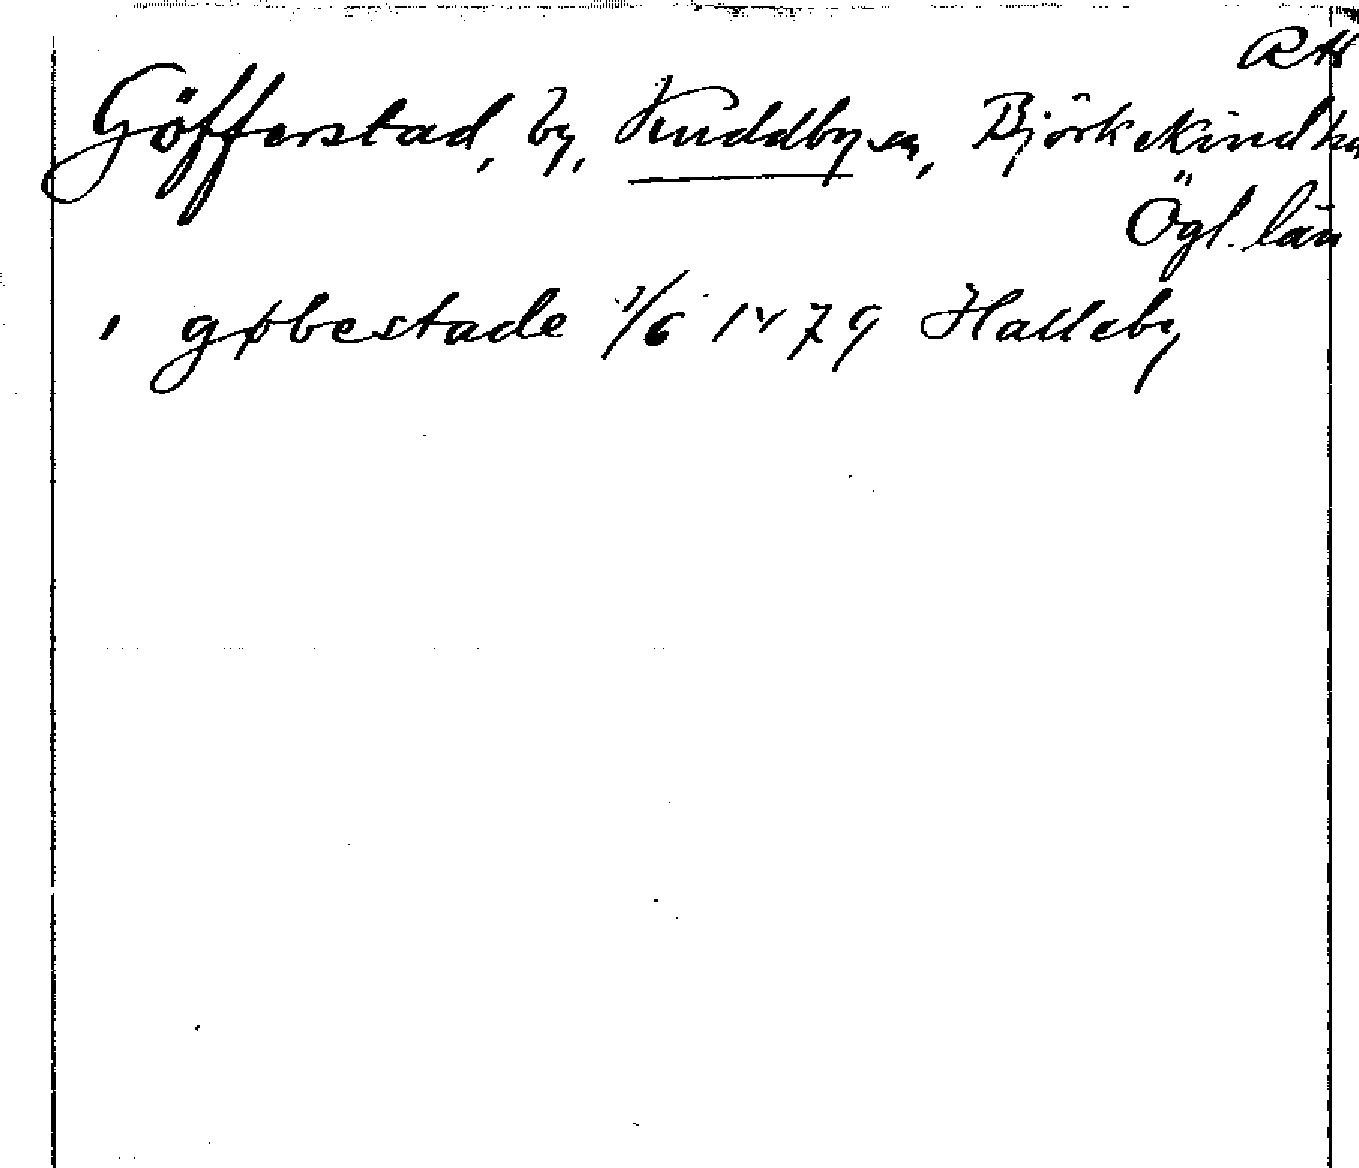 RA
Göfferstad, by, Kuddby sn, Björkekind hd
Ögl. län
i gøbestade 1/6 1479 Halleby